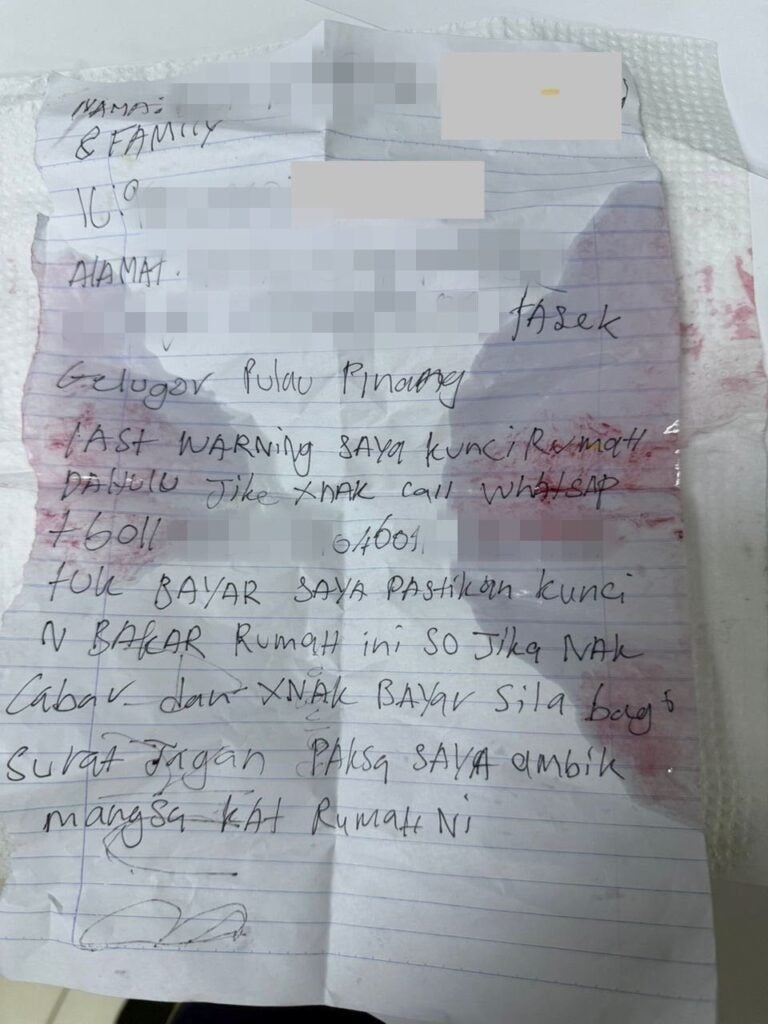 NAMA:
& FAMILY
IC:
ALAMAT.
tASek
Gelugor Pulau Pinang
LASt WARNing SAYA kunci RumaH
DAHULU Jike XNAK Call WhatSAP
+6011 01601
tUK BAYAR SAYA PAStikan kunci
N BAKAR RumaH ini SO Jika NAK
Cabar dan XNAK BAYar Sila bagi
Surat Jagan PAksa SAYA ambik
mangsa kAt RumaH Ni